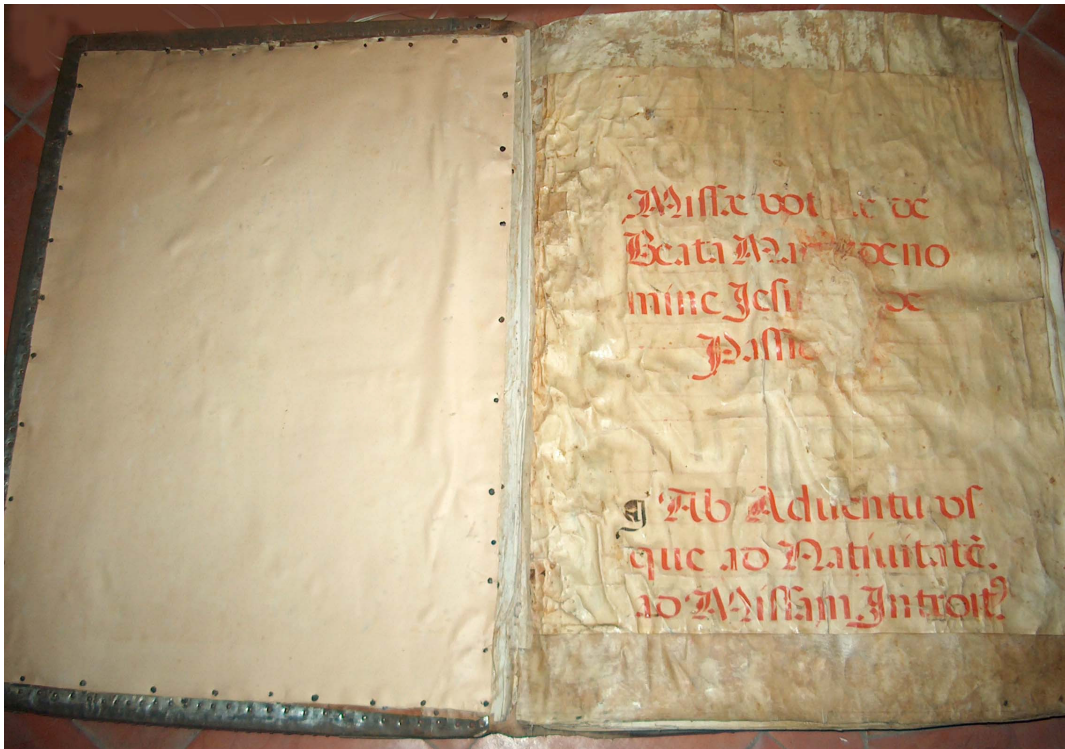 Missæ vot de
Beata Mar deno
mine Jesu de
Passio
Ab Aduentu vs
que ad Natiuitatē.
ad Missam Introit9